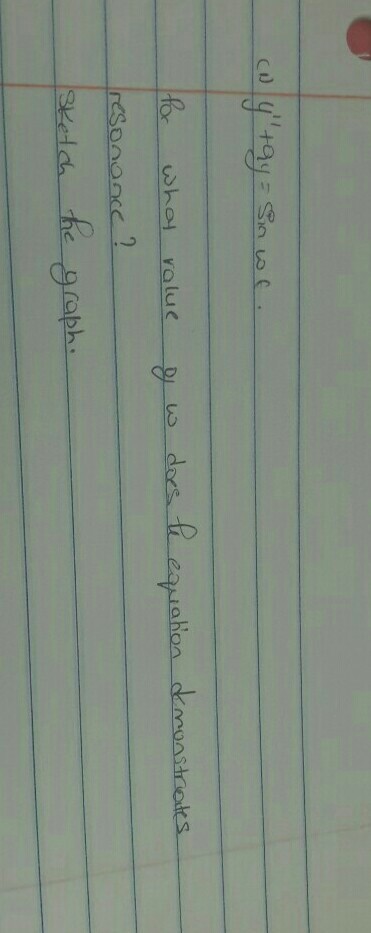 (1) y'' + 9y = Sin ωt.
for what value of ω does the equation demonstrates
resonance?
Sketch the graph.